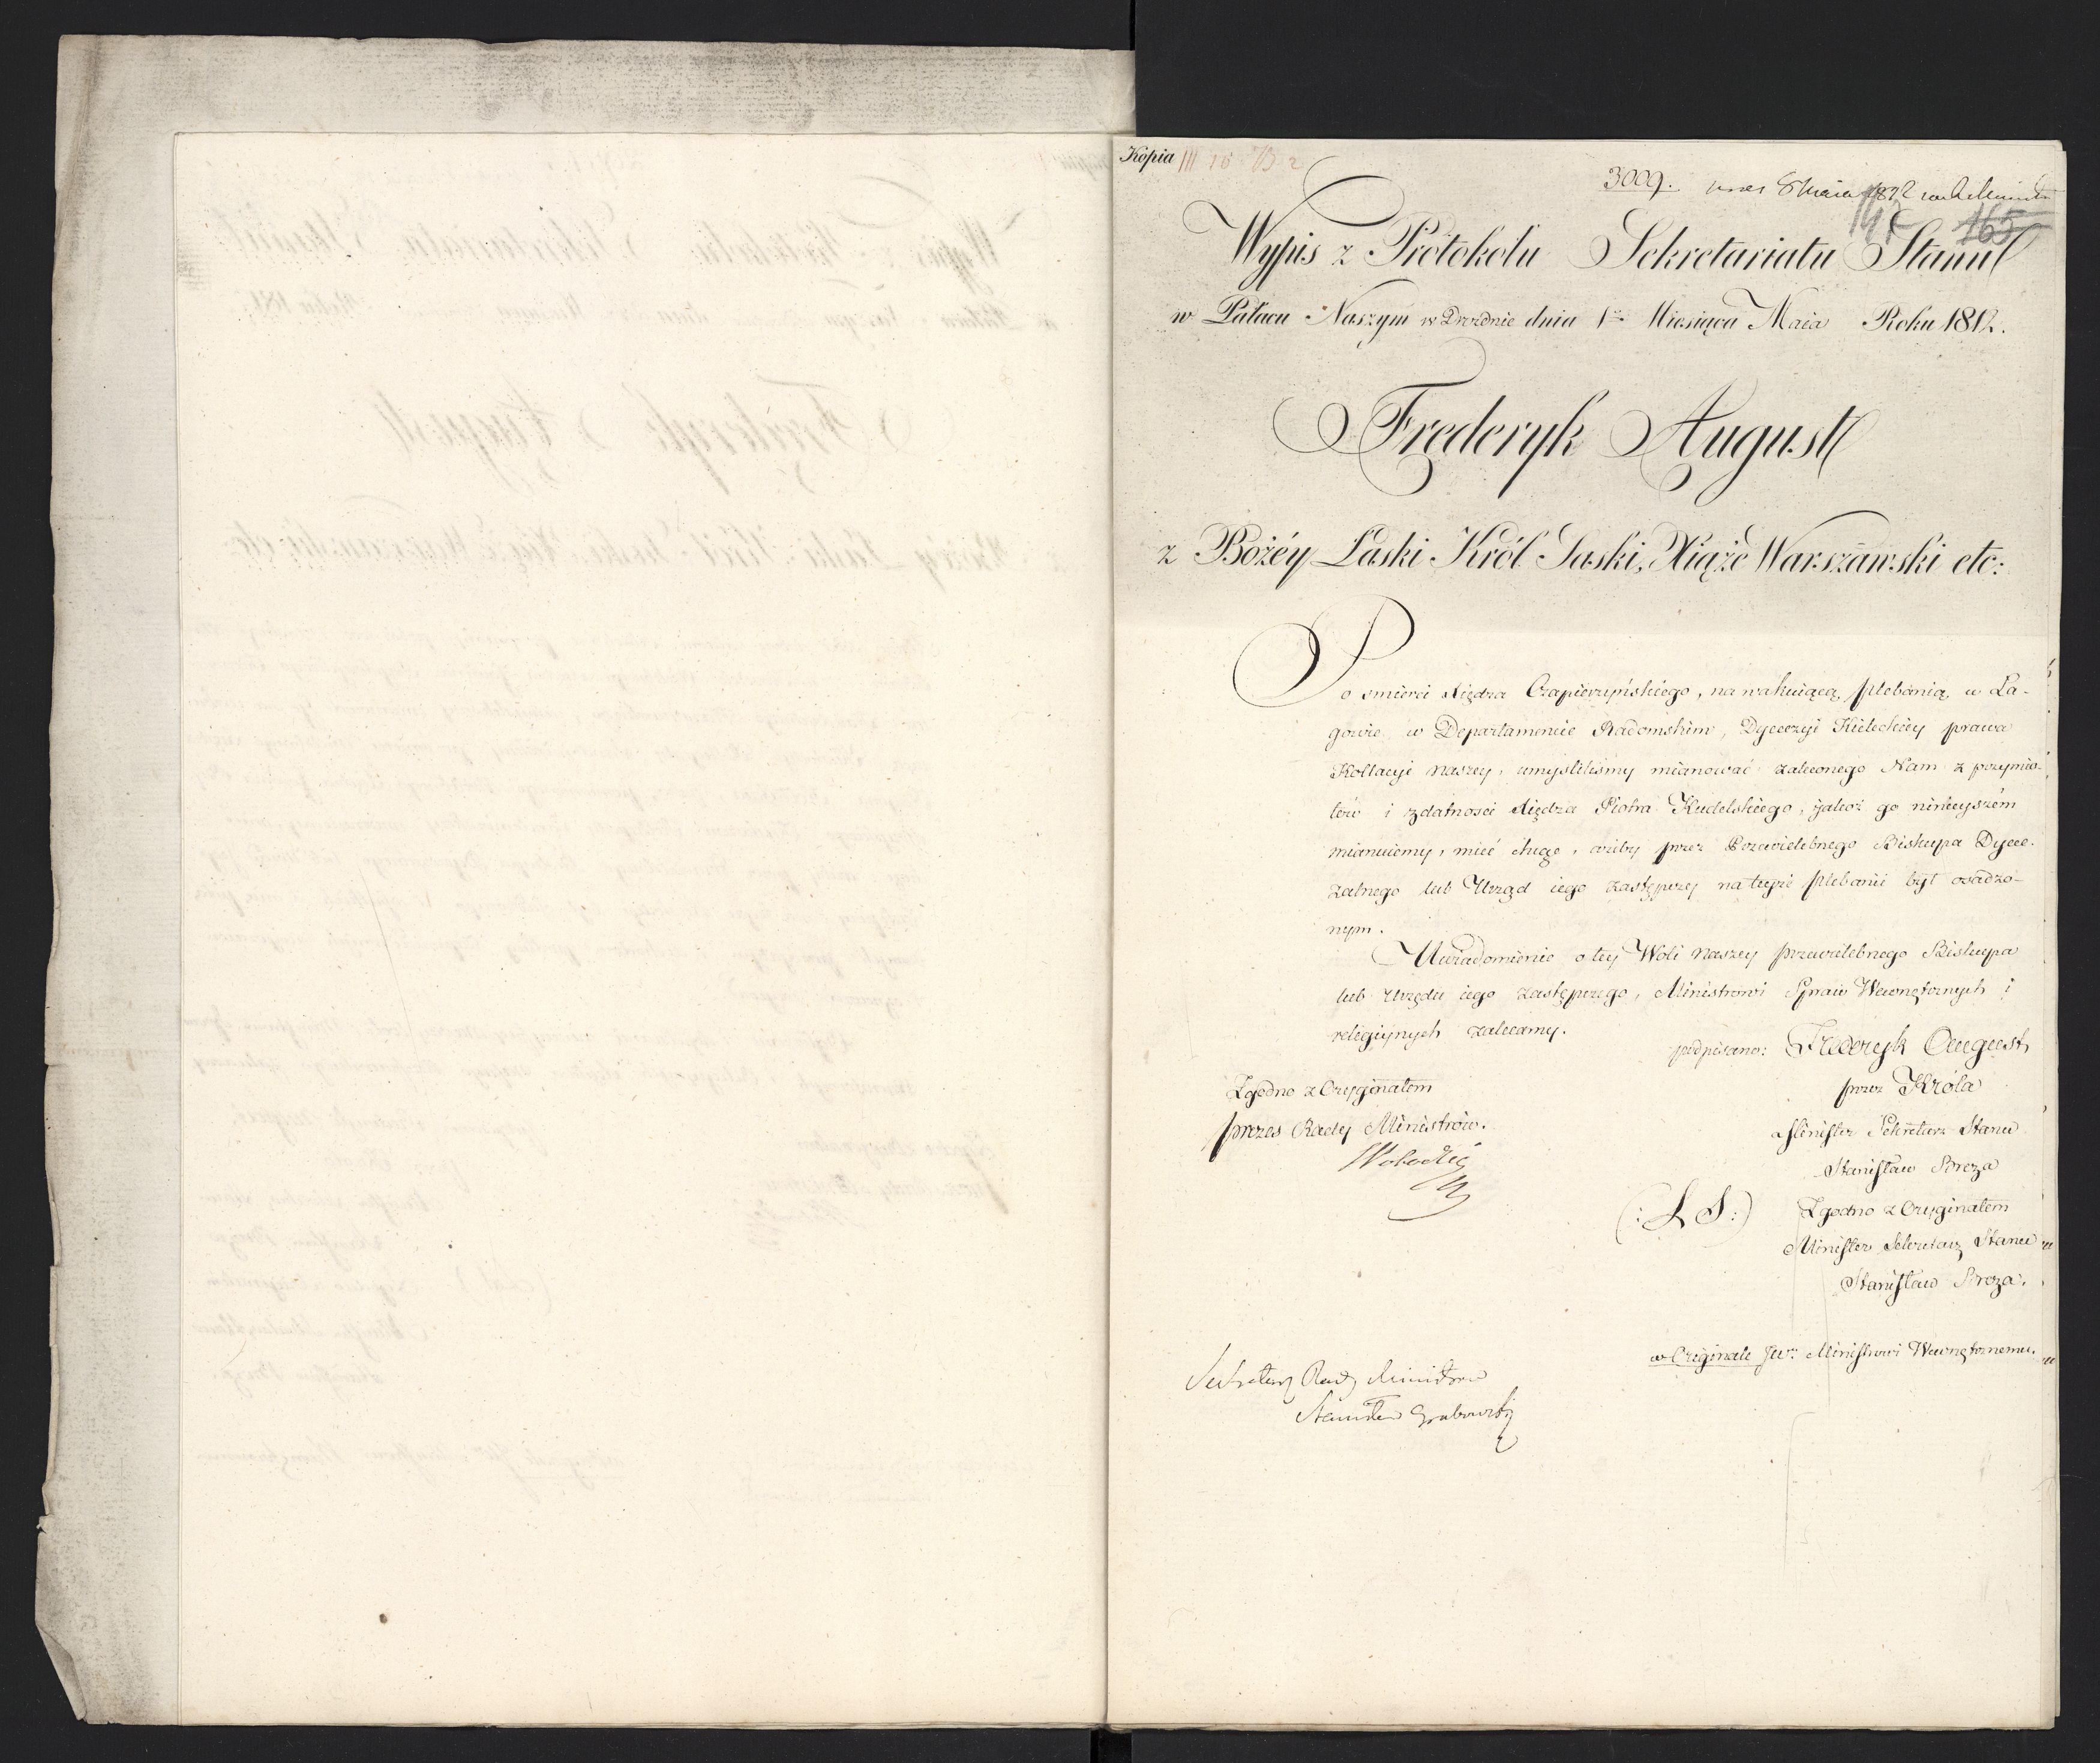 Kopia III 16 B 2
3009.
147 165
Wypis z Protokołu Sekretariatu Stanu
w Pałacu Naszym w Dreźdnie dnia 1go Miesiąca Maia Roku 1812.
Frederyk August
z Bożéy Łaski Król Saski, Xiąże Warszawski etc:
Po smierci Xiędza Czapierzyńskiego, na wakuiącą plebanią w Ła-
gowie w Departamencie Radomskim, Dyecezyi Kieleckiey prawa
Kollacyi naszey, umyśliliśmy mianować zaleconego Nam z przymio-
tów i zdatnosci Xiędza Piotra Kudelskiego, iakoż go ninieyszém
mianuiemy, mieć chcąc, ażeby przez Przewielebnego Biskupa Dyece-
zalnego lub Urząd iego zastępczy na teyże plebanii był osadzo-
nym.
Uwiadomienie o tey Woli naszey przewielebnego Biskupa
lub urzędu iego zastępczego, Ministrowi Spraw Wewnętrznych i
religiynych zalecamy.
podpisano: Frederyk August
przez Króla
Minister Sekretarz Stanu
Stanisław Breza
(: L S :) Zgodno z Oryginałem
Minister Sekretarz Stanu
Stanisław Breza.
Zgodno z Oryginałem
prezes Rady Ministrów.
w Oryginale Jw: Ministrowi Wewnętrznemu.
Sekretarz Rady Ministrow
Stanisław Grabowski